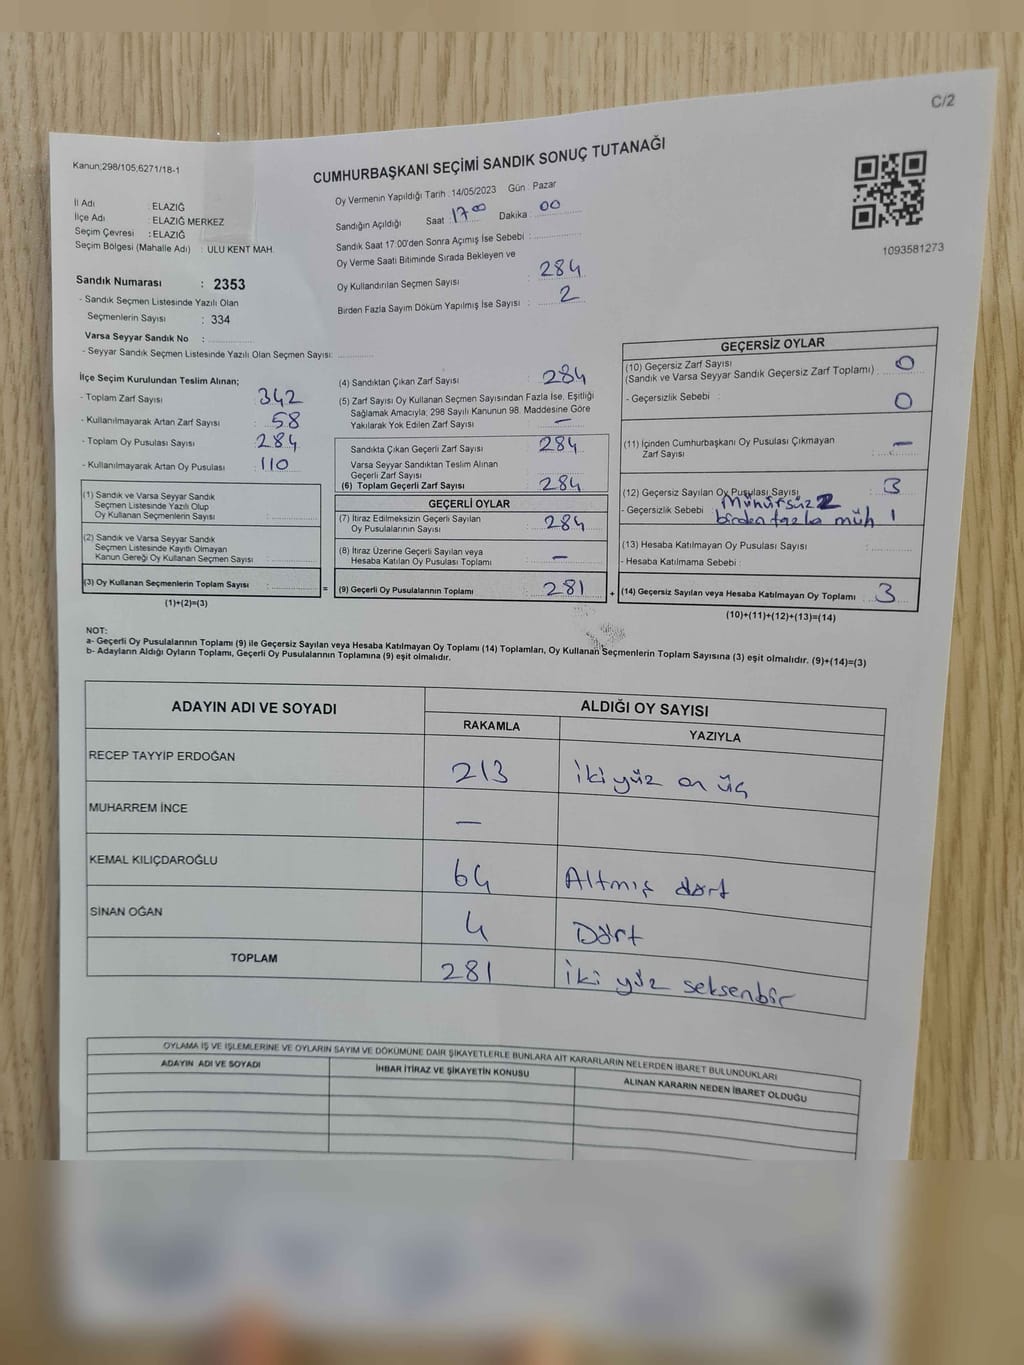 C/2
Kanun;298/105;6271/18-1
CUMHURBAŞKANI SEÇİMİ SANDIK SONUÇ TUTANAĞI
İl Adı : ELAZIĞ
İlçe Adı : ELAZIĞ MERKEZ
Seçim Çevresi : ELAZIĞ
Seçim Bölgesi (Mahalle Adı) : ULU KENT MAH.
Oy Vermenin Yapıldığı Tarih : 14/05/2023 Gün : Pazar
Sandığın Açıldığı Saat 17 00 Dakika 00
Sandık Saat 17:00'den Sonra Açımış İse Sebebi :
Oy Verme Saati Bitiminde Sırada Bekleyen ve
Oy Kullandırılan Seçmen Sayısı : 284
Birden Fazla Sayım Döküm Yapılmış İse Sayısı : 2
1093581273
Sandık Numarası : 2353
- Sandık Seçmen Listesinde Yazılı Olan
Seçmenlerin Sayısı : 334
Varsa Seyyar Sandık No :
- Seyyar Sandık Seçmen Listesinde Yazılı Olan Seçmen Sayısı:
İlçe Seçim Kurulundan Teslim Alınan;
- Toplam Zarf Sayısı : 342
- Kullanılmayarak Artan Zarf Sayısı : 58
- Toplam Oy Pusulası Sayısı : 284
- Kullanılmayarak Artan Oy Pusulası : 110
(1) Sandık ve Varsa Seyyar Sandık
Seçmen Listesinde Yazılı Olup
Oy Kullanan Seçmenlerin Sayısı :
(2) Sandık ve Varsa Seyyar Sandık
Seçmen Listesinde Kayıtlı Olmayan
Kanun Gereği Oy Kullanan Seçmen Sayısı :
(3) Oy Kullanan Seçmenlerin Toplam Sayısı : =
(1)+(2)=(3)
(4) Sandıktan Çıkan Zarf Sayısı : 284
(5) Zarf Sayısı Oy Kullanan Seçmen Sayısından Fazla İse, Eşitliği
Sağlamak Amacıyla; 298 Sayılı Kanunun 98. Maddesine Göre
Yakılarak Yok Edilen Zarf Sayısı : —
Sandıkta Çıkan Geçerli Zarf Sayısı : 284
Varsa Seyyar Sandıktan Teslim Alınan
Geçerli Zarf Sayısı
(6) Toplam Geçerli Zarf Sayısı : 284
GEÇERLİ OYLAR
(7) İtiraz Edilmeksizin Geçerli Sayılan
Oy Pusulalarının Sayısı : 284
(8) İtiraz Üzerine Geçerli Sayılan veya
Hesaba Katılan Oy Pusulası Toplamı : —
(9) Geçerli Oy Pusulalarının Toplamı : 281 +
GEÇERSİZ OYLAR
(10) Geçersiz Zarf Sayısı
(Sandık ve Varsa Seyyar Sandık Geçersiz Zarf Toplamı) : 0
- Geçersizlik Sebebi : 0
(11) İçinden Cumhurbaşkanı Oy Pusulası Çıkmayan
Zarf Sayısı : —
(12) Geçersiz Sayılan Oy Pusulası Sayısı : 3
- Geçersizlik Sebebi : Mühürsüz 2
birden fazla müh 1
(13) Hesaba Katılmayan Oy Pusulası Sayısı :
- Hesaba Katılmama Sebebi :
(14) Geçersiz Sayılan veya Hesaba Katılmayan Oy Toplamı : 3
(10)+(11)+(12)+(13)=(14)
NOT:
a- Geçerli Oy Pusulalarının Toplamı (9) ile Geçersiz Sayılan veya Hesaba Katılmayan Oy Toplamı (14) Toplamları, Oy Kullanan Seçmenlerin Toplam Sayısına (3) eşit olmalıdır. (9)+(14)=(3)
b- Adayların Aldığı Oyların Toplamı, Geçerli Oy Pusulalarının Toplamına (9) eşit olmalıdır.
ADAYIN ADI VE SOYADI ALDIĞI OY SAYISI
RAKAMLA YAZIYLA
RECEP TAYYİP ERDOĞAN 213 iki yüz on üç
MUHARREM İNCE —
KEMAL KILIÇDAROĞLU 64 Altmış dört
SİNAN OĞAN 4 Dört
TOPLAM 281 iki yüz seksenbir
OYLAMA İŞ VE İŞLEMLERİNE VE OYLARIN SAYIM VE DÖKÜMÜNE DAİR ŞİKAYETLERLE BUNLARA AİT KARARLARIN NELERDEN İBARET BULUNDUKLARI
ADAYIN ADI VE SOYADI İHBAR İTİRAZ VE ŞİKAYETİN KONUSU ALINAN KARARIN NEDEN İBARET OLDUĞU